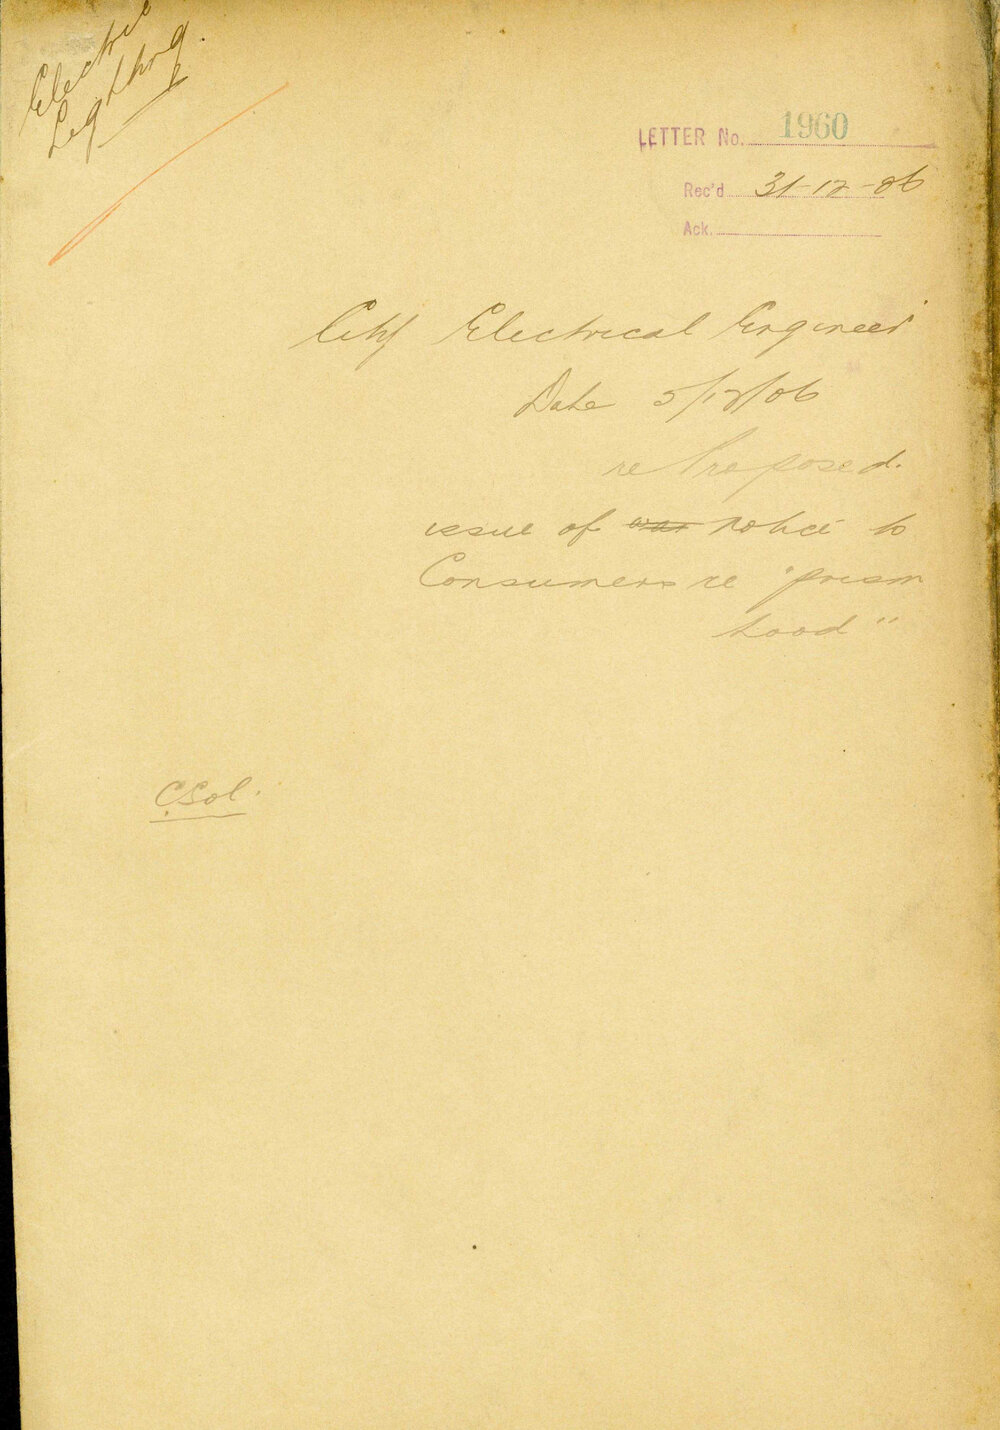 Electric
Lighting.
LETTER No. 1960
Rec'd 31-12-06
Ack.
City Electrical Engineer
Date 5/12/06
re Proposed
issue of notice to
Consumers re "prism
hood"
C.Sol.